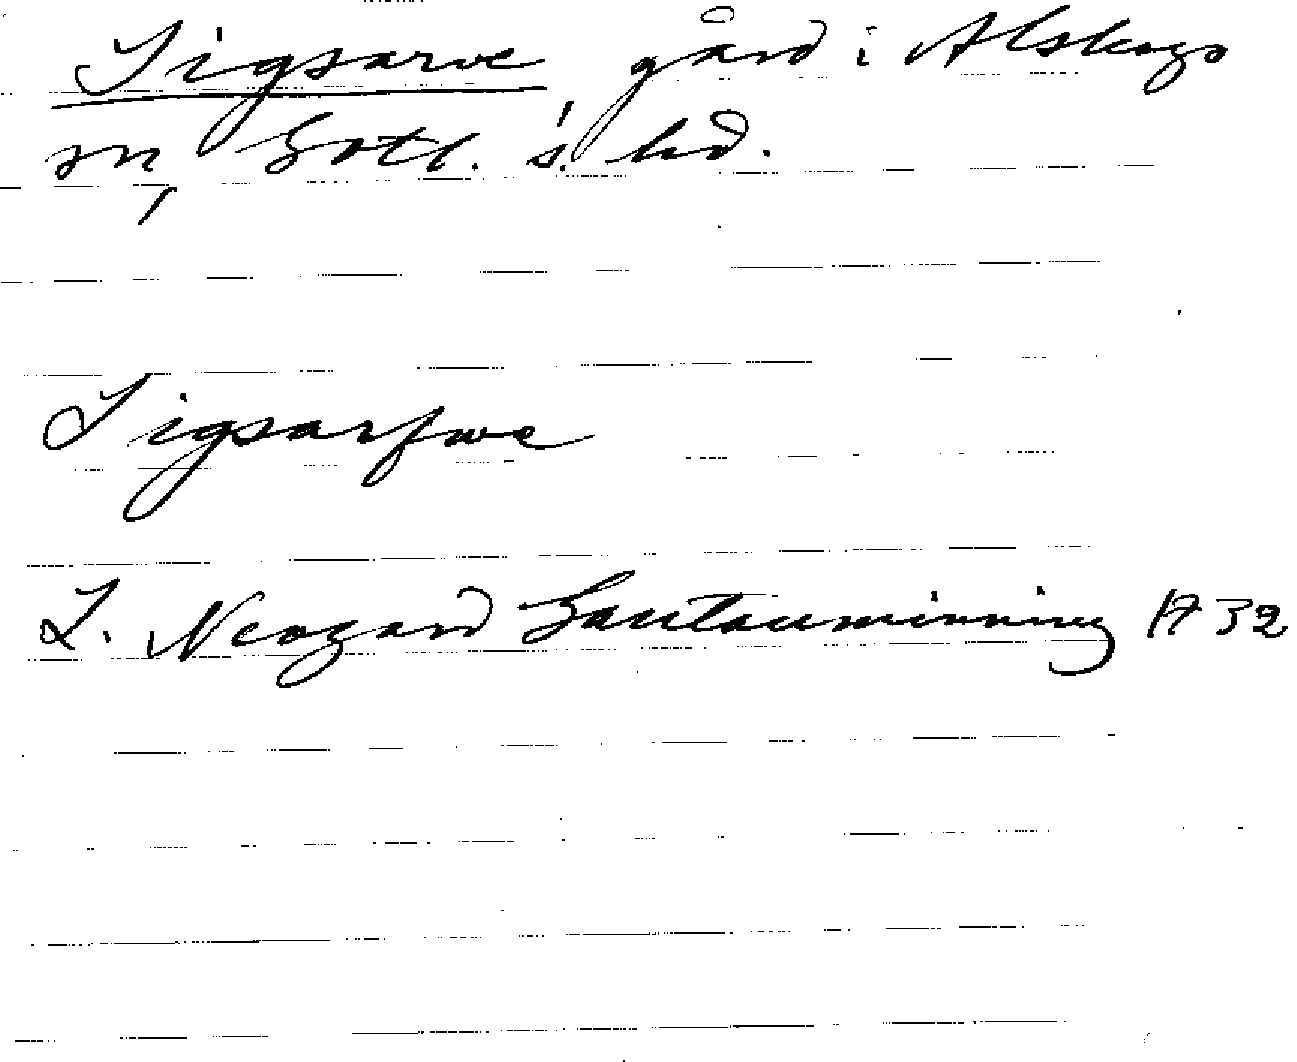 Sigsarve gård i Alskogs
sn, Gotl. s. hd.
Sigsarfwe
L. Neogard Gautauminning 1732